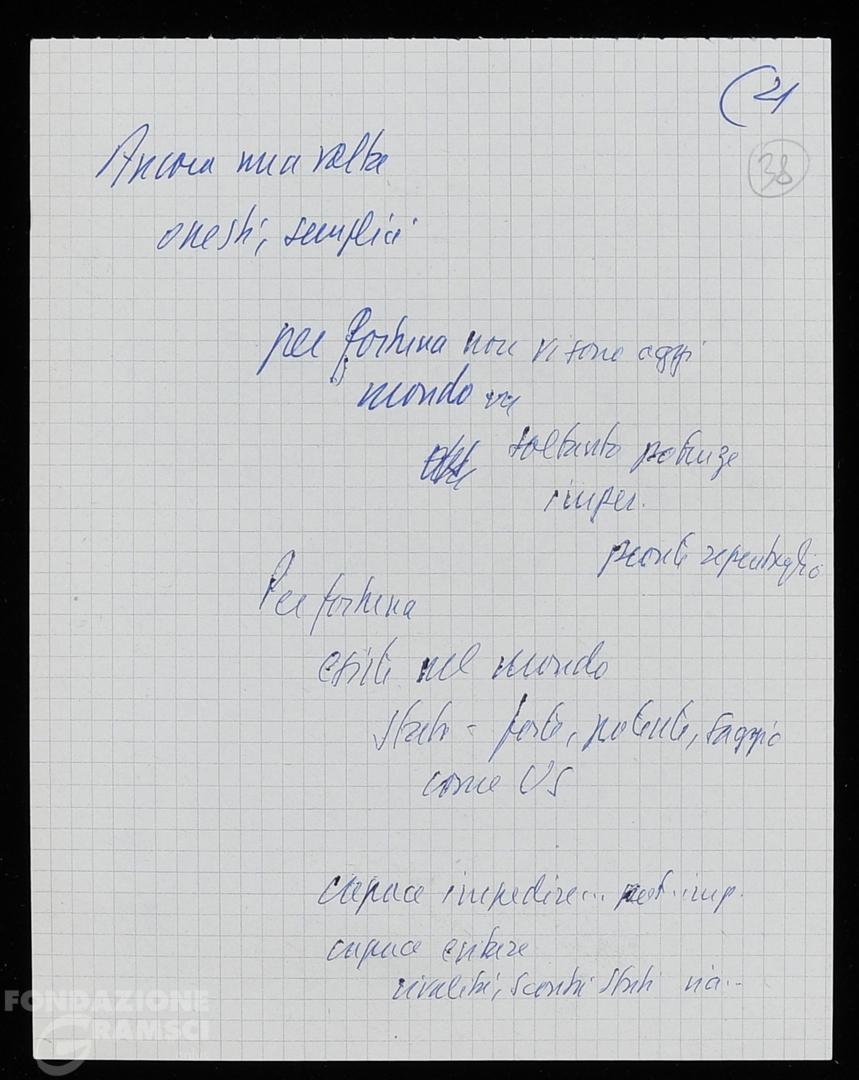 (21
38
Ancora una volta
onesti, semplici
per fortuna non vi sono oggi
mondo
soltanto potenze
imper.
pronte repentaglio
Per fortuna
esiste nel mondo
Stato - forte, potente, saggio
come US
capace impedire... pot. imp.
capace evitare
rivalità, scontri Stati via...
FONDAZIONE
GRAMSCI